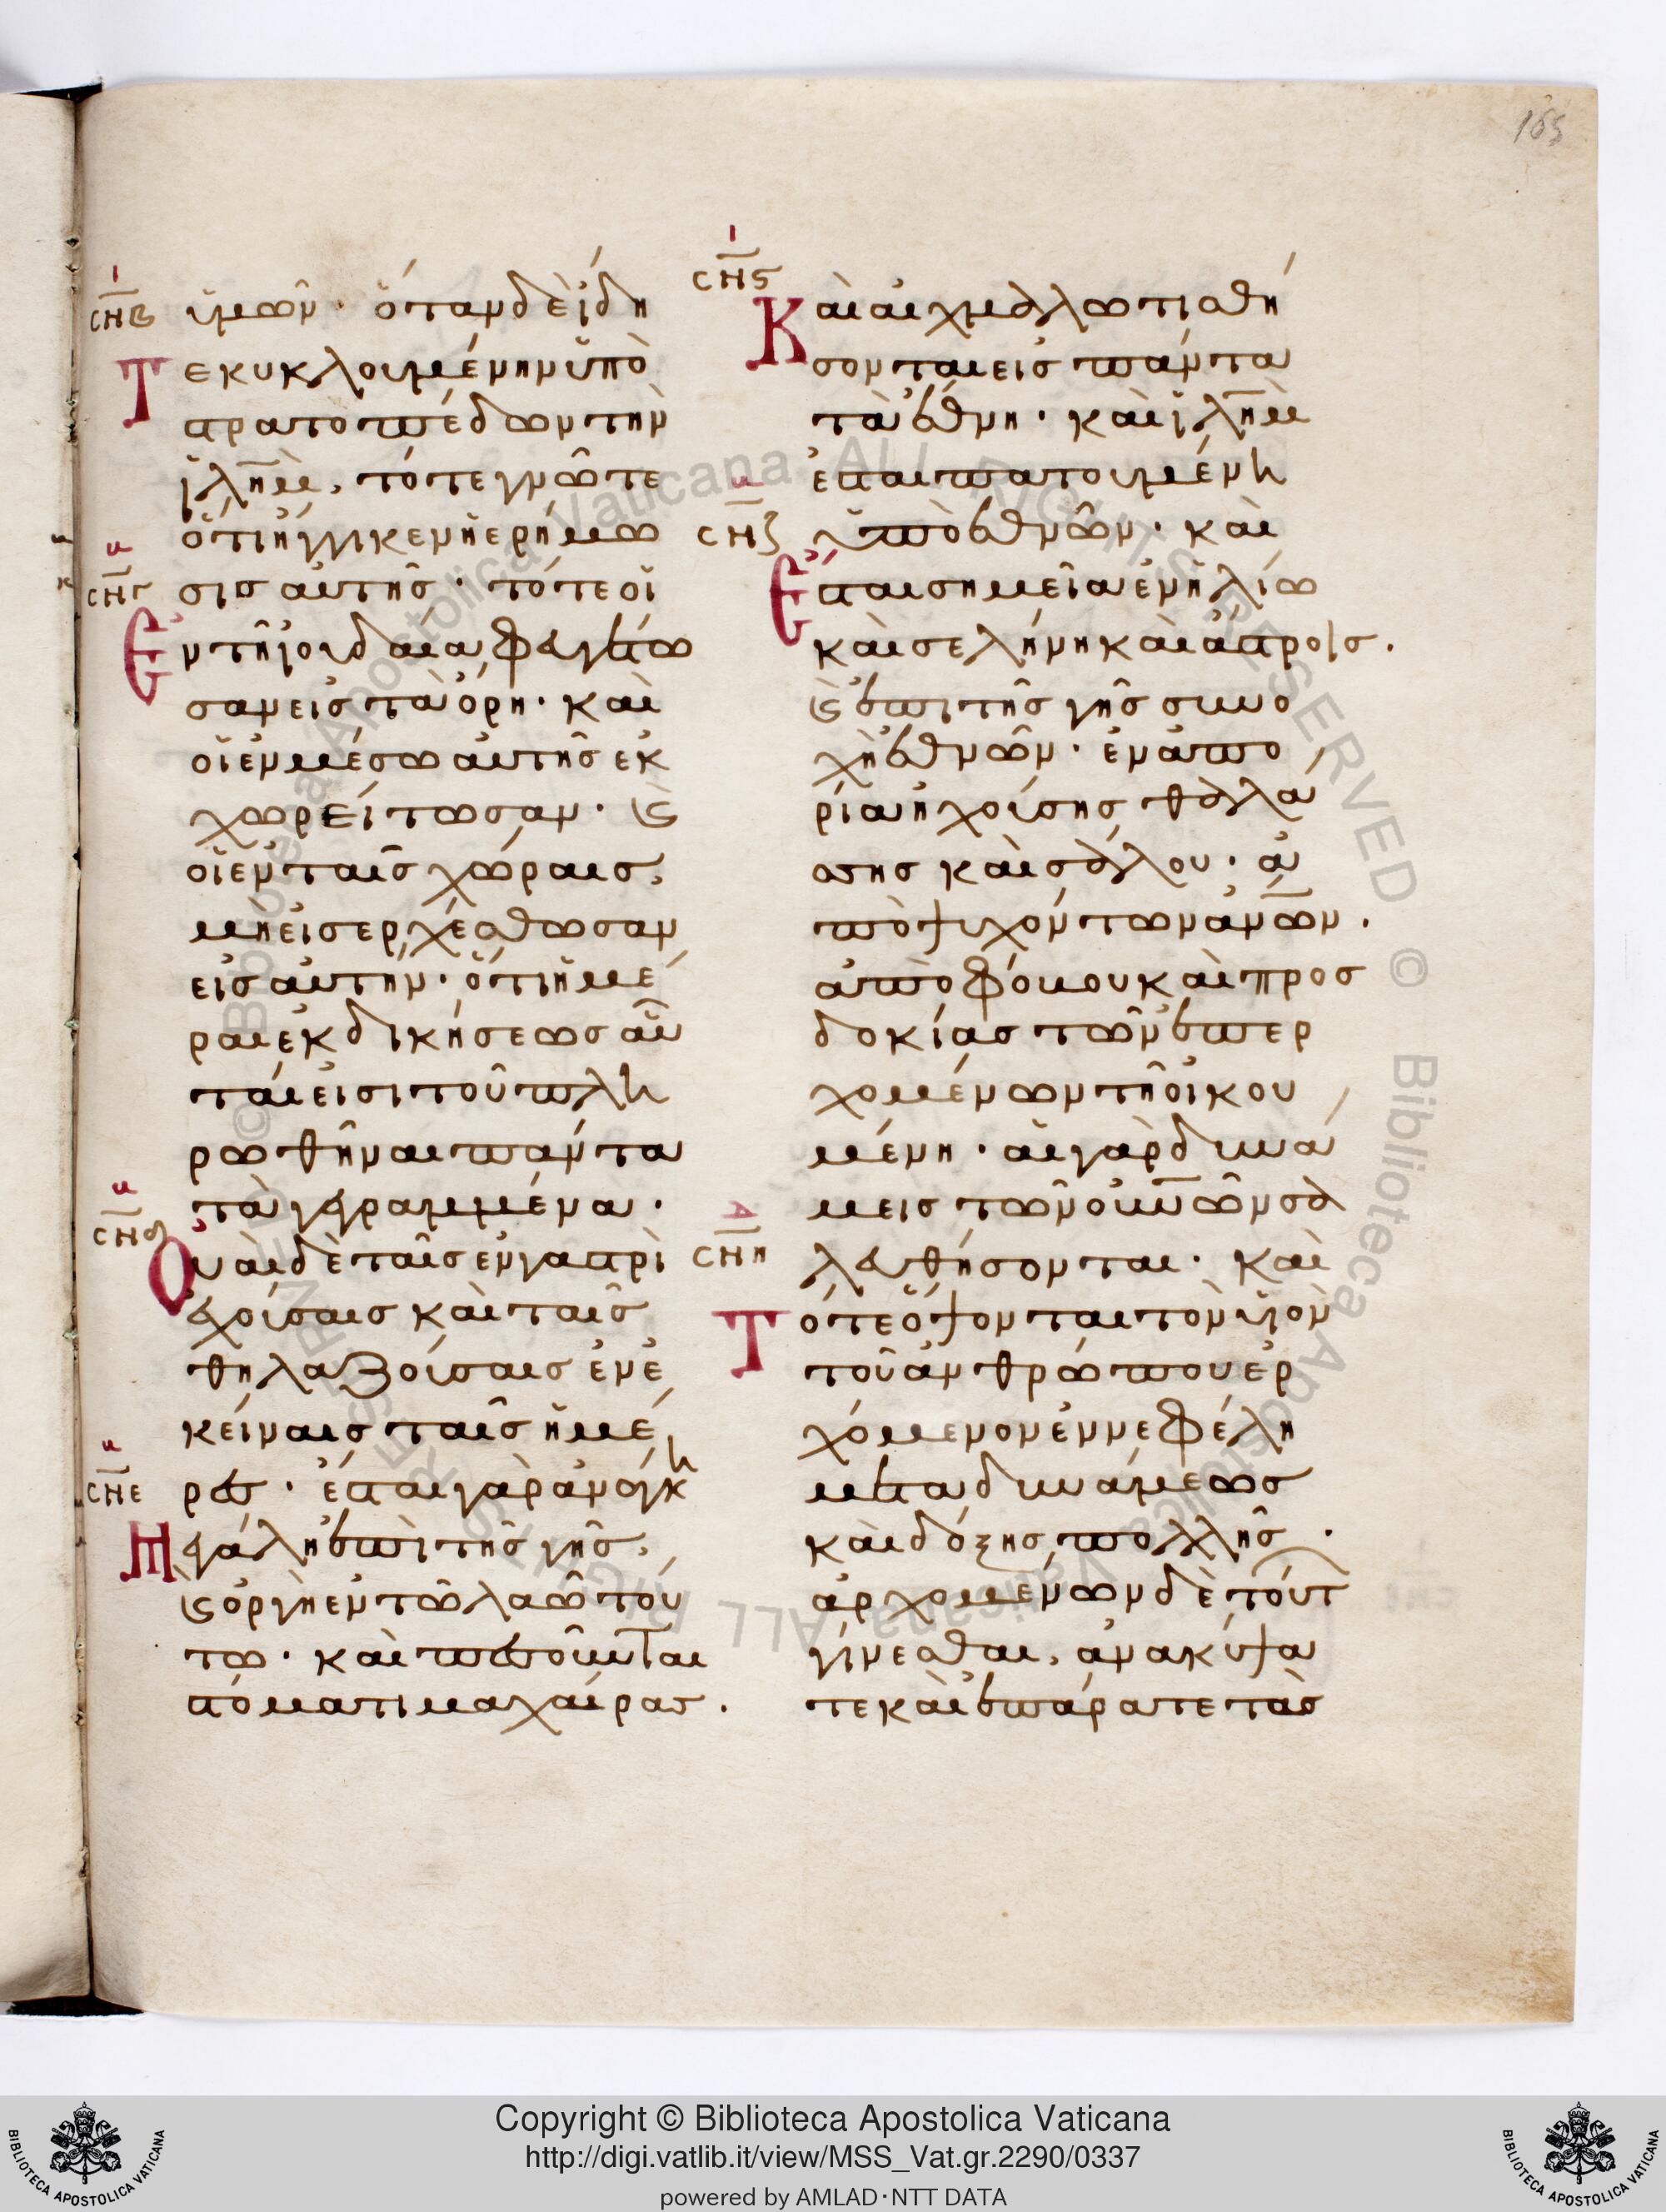 165
ϲηβ
ὑμῶν· ὅταν δὲ ἴδη
Τε κυκλουμένην ὑπὸ
στρατοπέδων τὴν
ἱλημ, τότε γνῶτε
ὅτι ἤγγικεν ἡ ἐρήμω
ϲηγ
σις αὐτῆς· τότε οἱ
Ἐν τῆ ἰουδαία φευγέτω
σαν εἰς τὰ ὄρη· καὶ
οἱ ἐν μέσω αὐτῆς ἐκ
χωρείτωσαν· ϗ
οἱ ἐν ταῖς χώραις,
μὴ εἰσερχέσθωσαν
εἰς αὐτήν· ὅτι ἡμέ
ραι ἐκδικήσεως αὗ
ταί εἰσι τοῦ πλη
ρωθῆναι πάντα
τὰ γεγραμμένα·
ϲηδ
Οὐαὶ δὲ ταῖς ἐν γαστρὶ
ἐχούσαις καὶ ταῖς
θηλαζούσαις ἐν ἐ
κείναις ταῖς ἡμέ
ϲηε
ραις· ἔσται γὰρ ἀνάγκη
Μεγάλη ἐπὶ τῆς γῆς,
ϗ ὀργὴ ἐν τῶ λαῶ τού
τω· καὶ πεσοῦνται
στόματι μαχαίρας.
ϲηϛ
Καὶ αἰχμαλωτισθή
σονται εἰς πάντα
τὰ ἔθνη· καὶ ἱλημ
ἔσται πατουμένη
ϲηζ
ὑπὸ ἐθνῶν· καὶ
Ἔσται σημεῖα ἐν ἡλίω
καὶ σελήνη καὶ ἄστροις.
ϗ ἐπὶ τῆς γῆς συνο
χὴ ἐθνῶν· ἐν ἀπο
ρία ἠχούσης θαλά
σσης καὶ σάλου· ἀ
ποψυχόντων ἀνων.
ἀπὸ φόβου καὶ προσ
δοκίας τῶν ἐπερ
χομένων τῆ οἰκου
μένη· αἱ γὰρ δυνά
μεις τῶν οὐνῶν σα
ϲηη
λευθήσονται· καὶ
Τότε ὄψονται τὸν υἱὸν
τοῦ ἀνθρώπου ἐρ
χόμενον ἐν νεφέλη
μετὰ δυνάμεως
καὶ δόξης πολλῆς·
ἀρχομένων δὲ τούτ
γίνεσθαι, ἀνακύψα
τε καὶ ἐπάρατε τὰς
Copyright © Biblioteca Apostolica Vaticana
http://digi.vatlib.it/view/MSS_Vat.gr.2290/0337
powered by AMLAD·NTT DATA